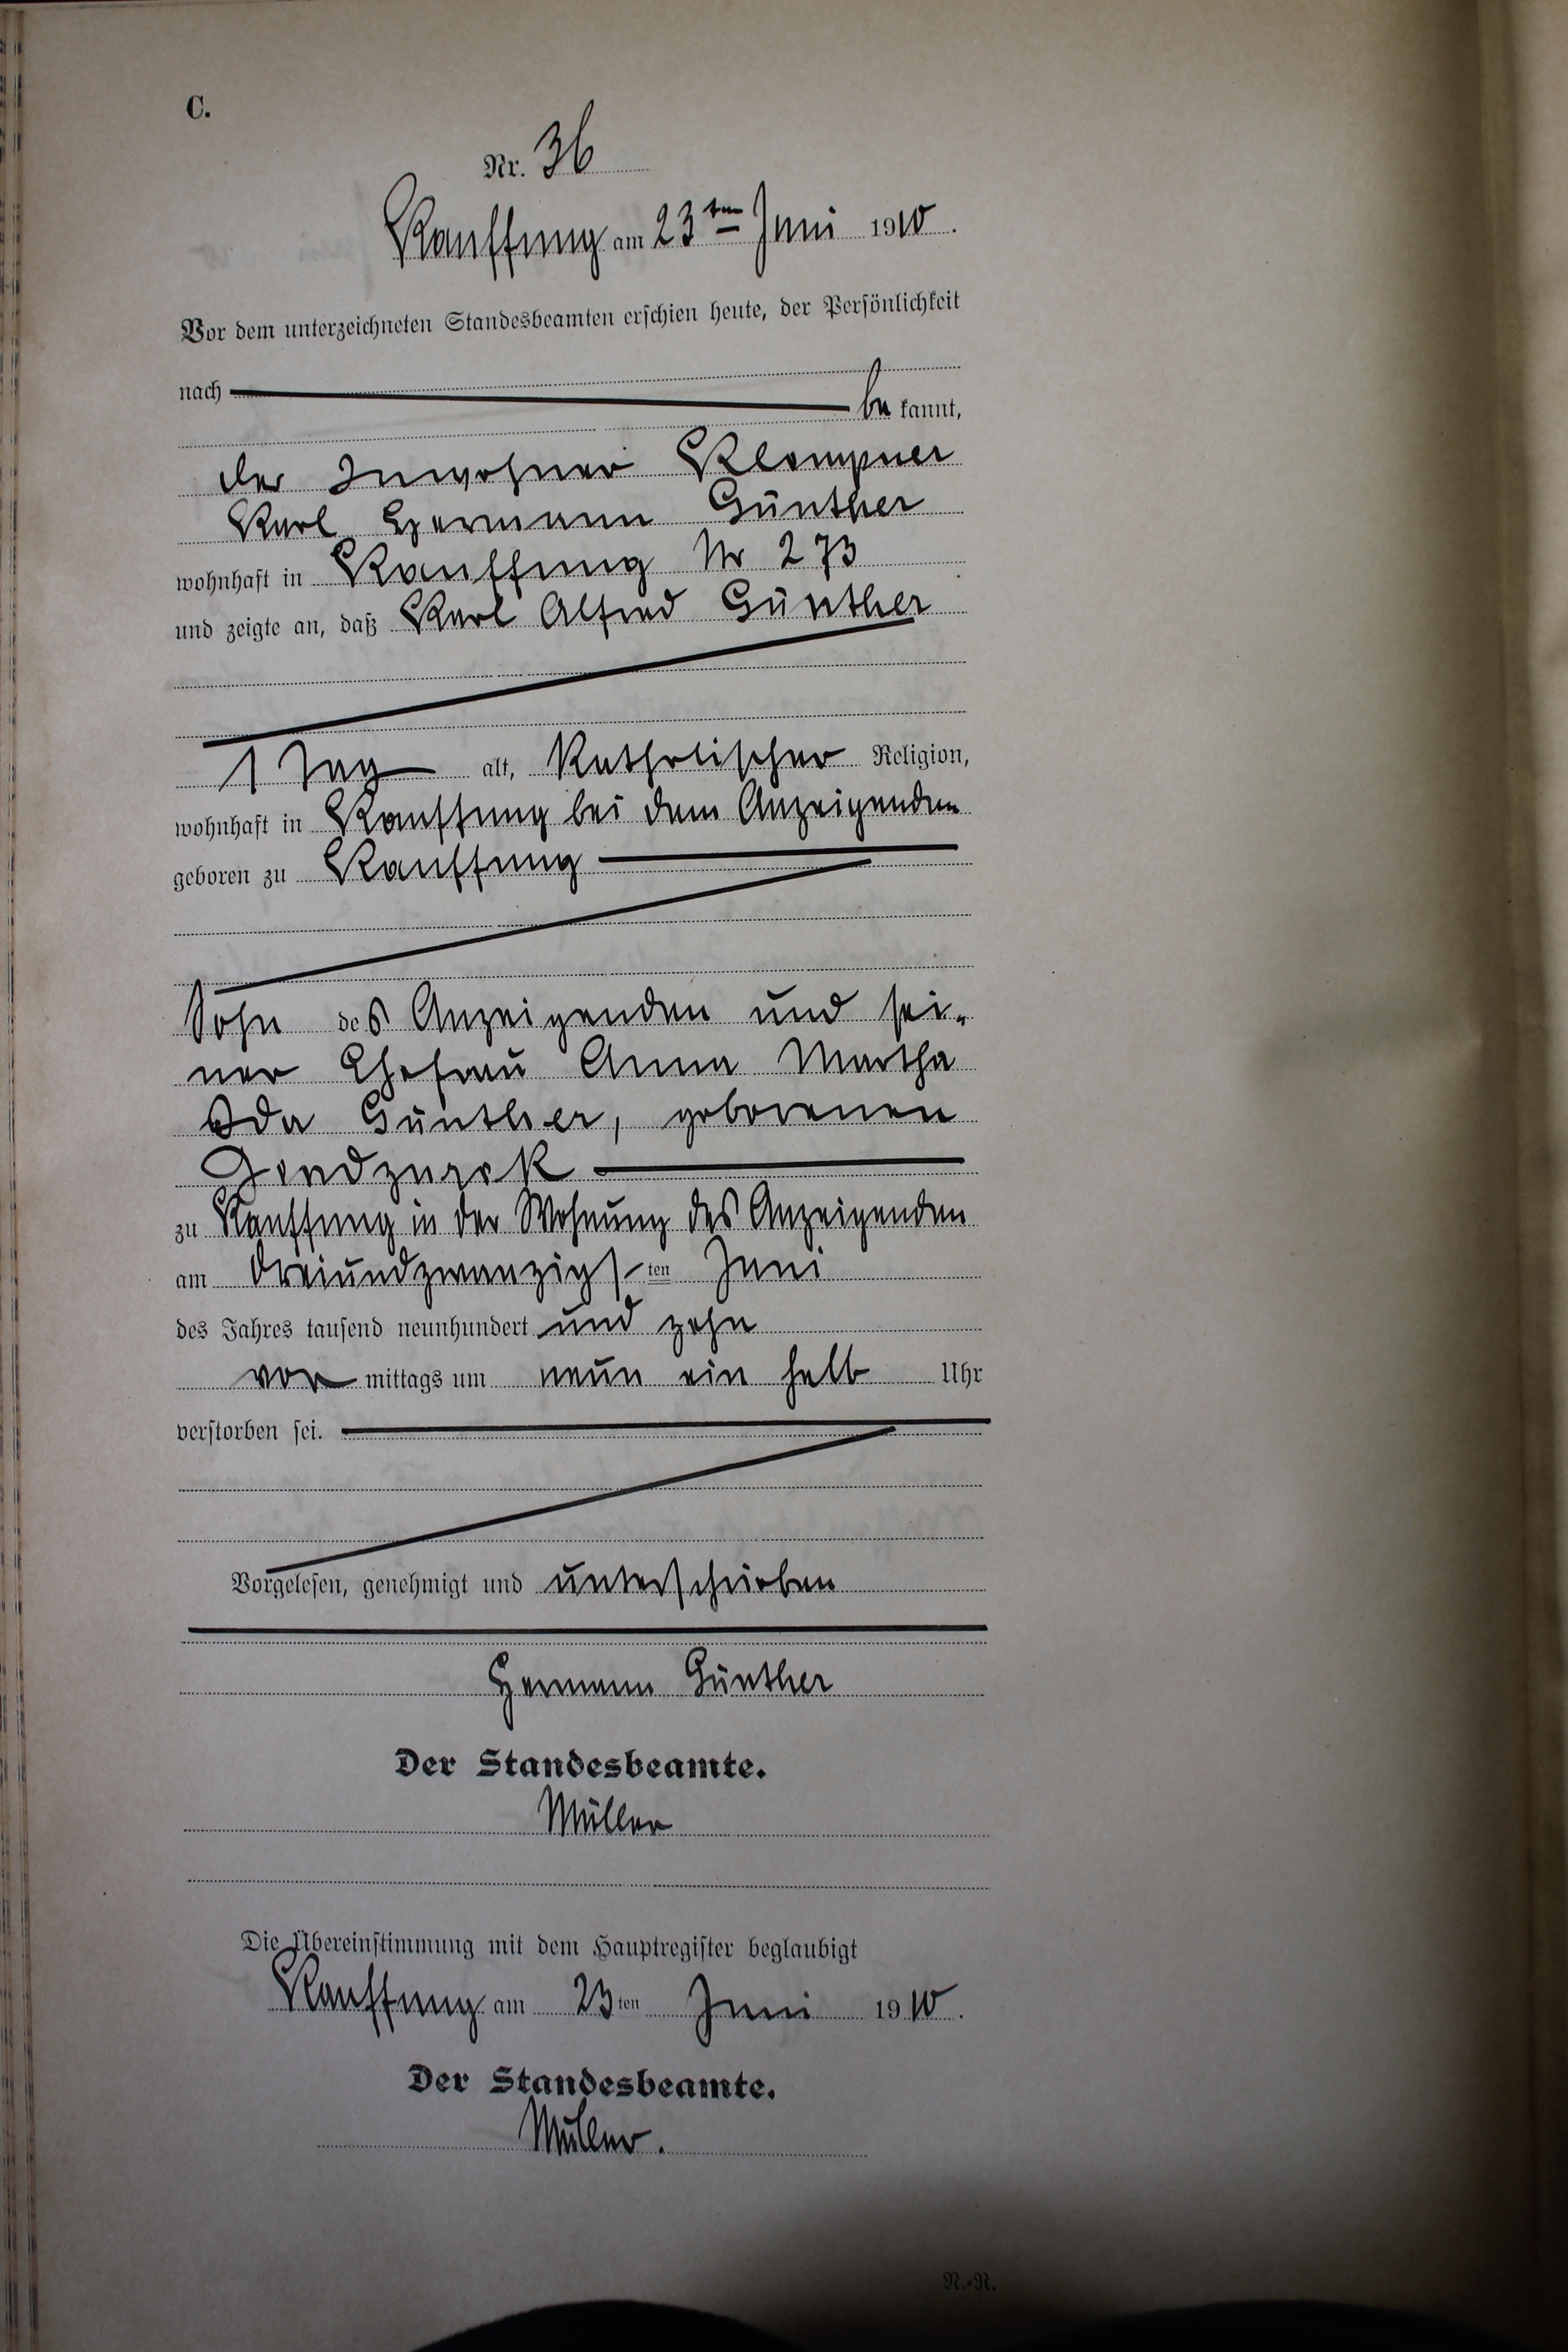 C.
Nr. 36
Kauffung am 23ten Juni 1910.
Vor dem unterzeichneten Standesbeamten erschien heute, der Persönlichkeit
nach
be kannt,
der Inwohner Klempner
Karl Hermann Günther
wohnhaft in Kauffung Nr 273
und zeigte an, daß Karl Alfred Günther
1 Tag alt, Katholischer Religion,
wohnhaft in Kauffung bei dem Anzeigenden
geboren zu Kauffung
Sohn des Anzeigenden und sei-
ner Ehefrau Anna Martha
Ida Günther, geborenen
zu Kauffung in der Wohnung des Anzeigenden
am dreiundzwanzigsten Juni
des Jahres tausend neunhundert und zehn
vor mittags um neun ein halb Uhr
verstorben sei.
Vorgelesen, genehmigt und unterschrieben
Hermann Günther
Der Standesbeamte.
Müller
Die Übereinstimmung mit dem Hauptregister beglaubigt
Kauffung am 23ten Juni 1910.
Der Standesbeamte.
Müller.
N.-R.